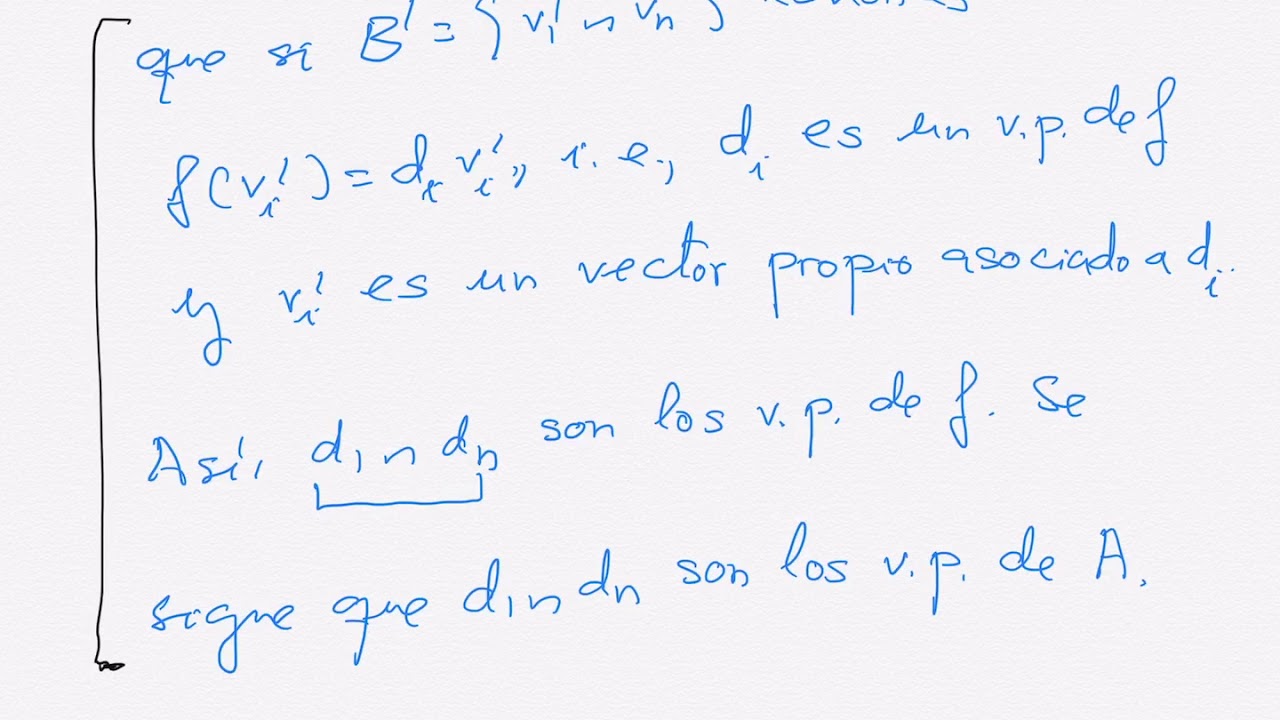 que si B' = { v₁' ~ vₙ' }
f(vᵢ') = dᵢ vᵢ', i.e., dᵢ es un v.p. de f
y vᵢ' es un vector propio asociado a dᵢ.
Así, d₁ ~ dₙ son los v.p. de f. Se
sigue que d₁ ~ dₙ son los v.p. de A.